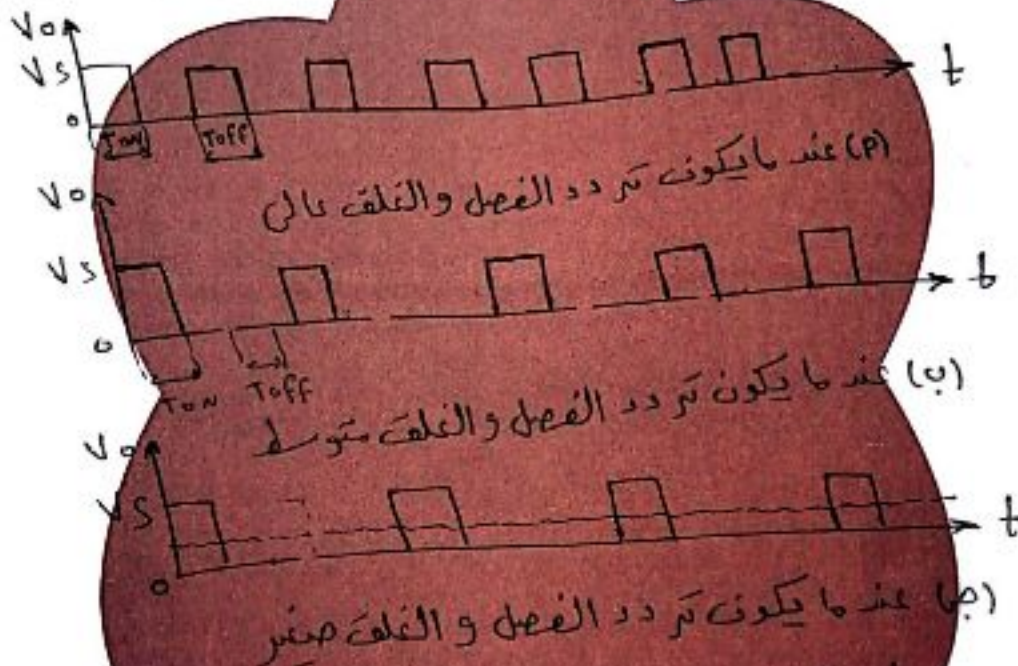 Vo
Vs
t
0
Ton Toff
(P) عند ما يكون تردد الفصل والغلق عالى
Vo
Vs
t
0
Ton Toff
(ب) عند ما يكون تردد الفصل والغلق متوسط
Vo
Vs
t
0
(ج) عند ما يكون تردد الفصل والغلق صغير